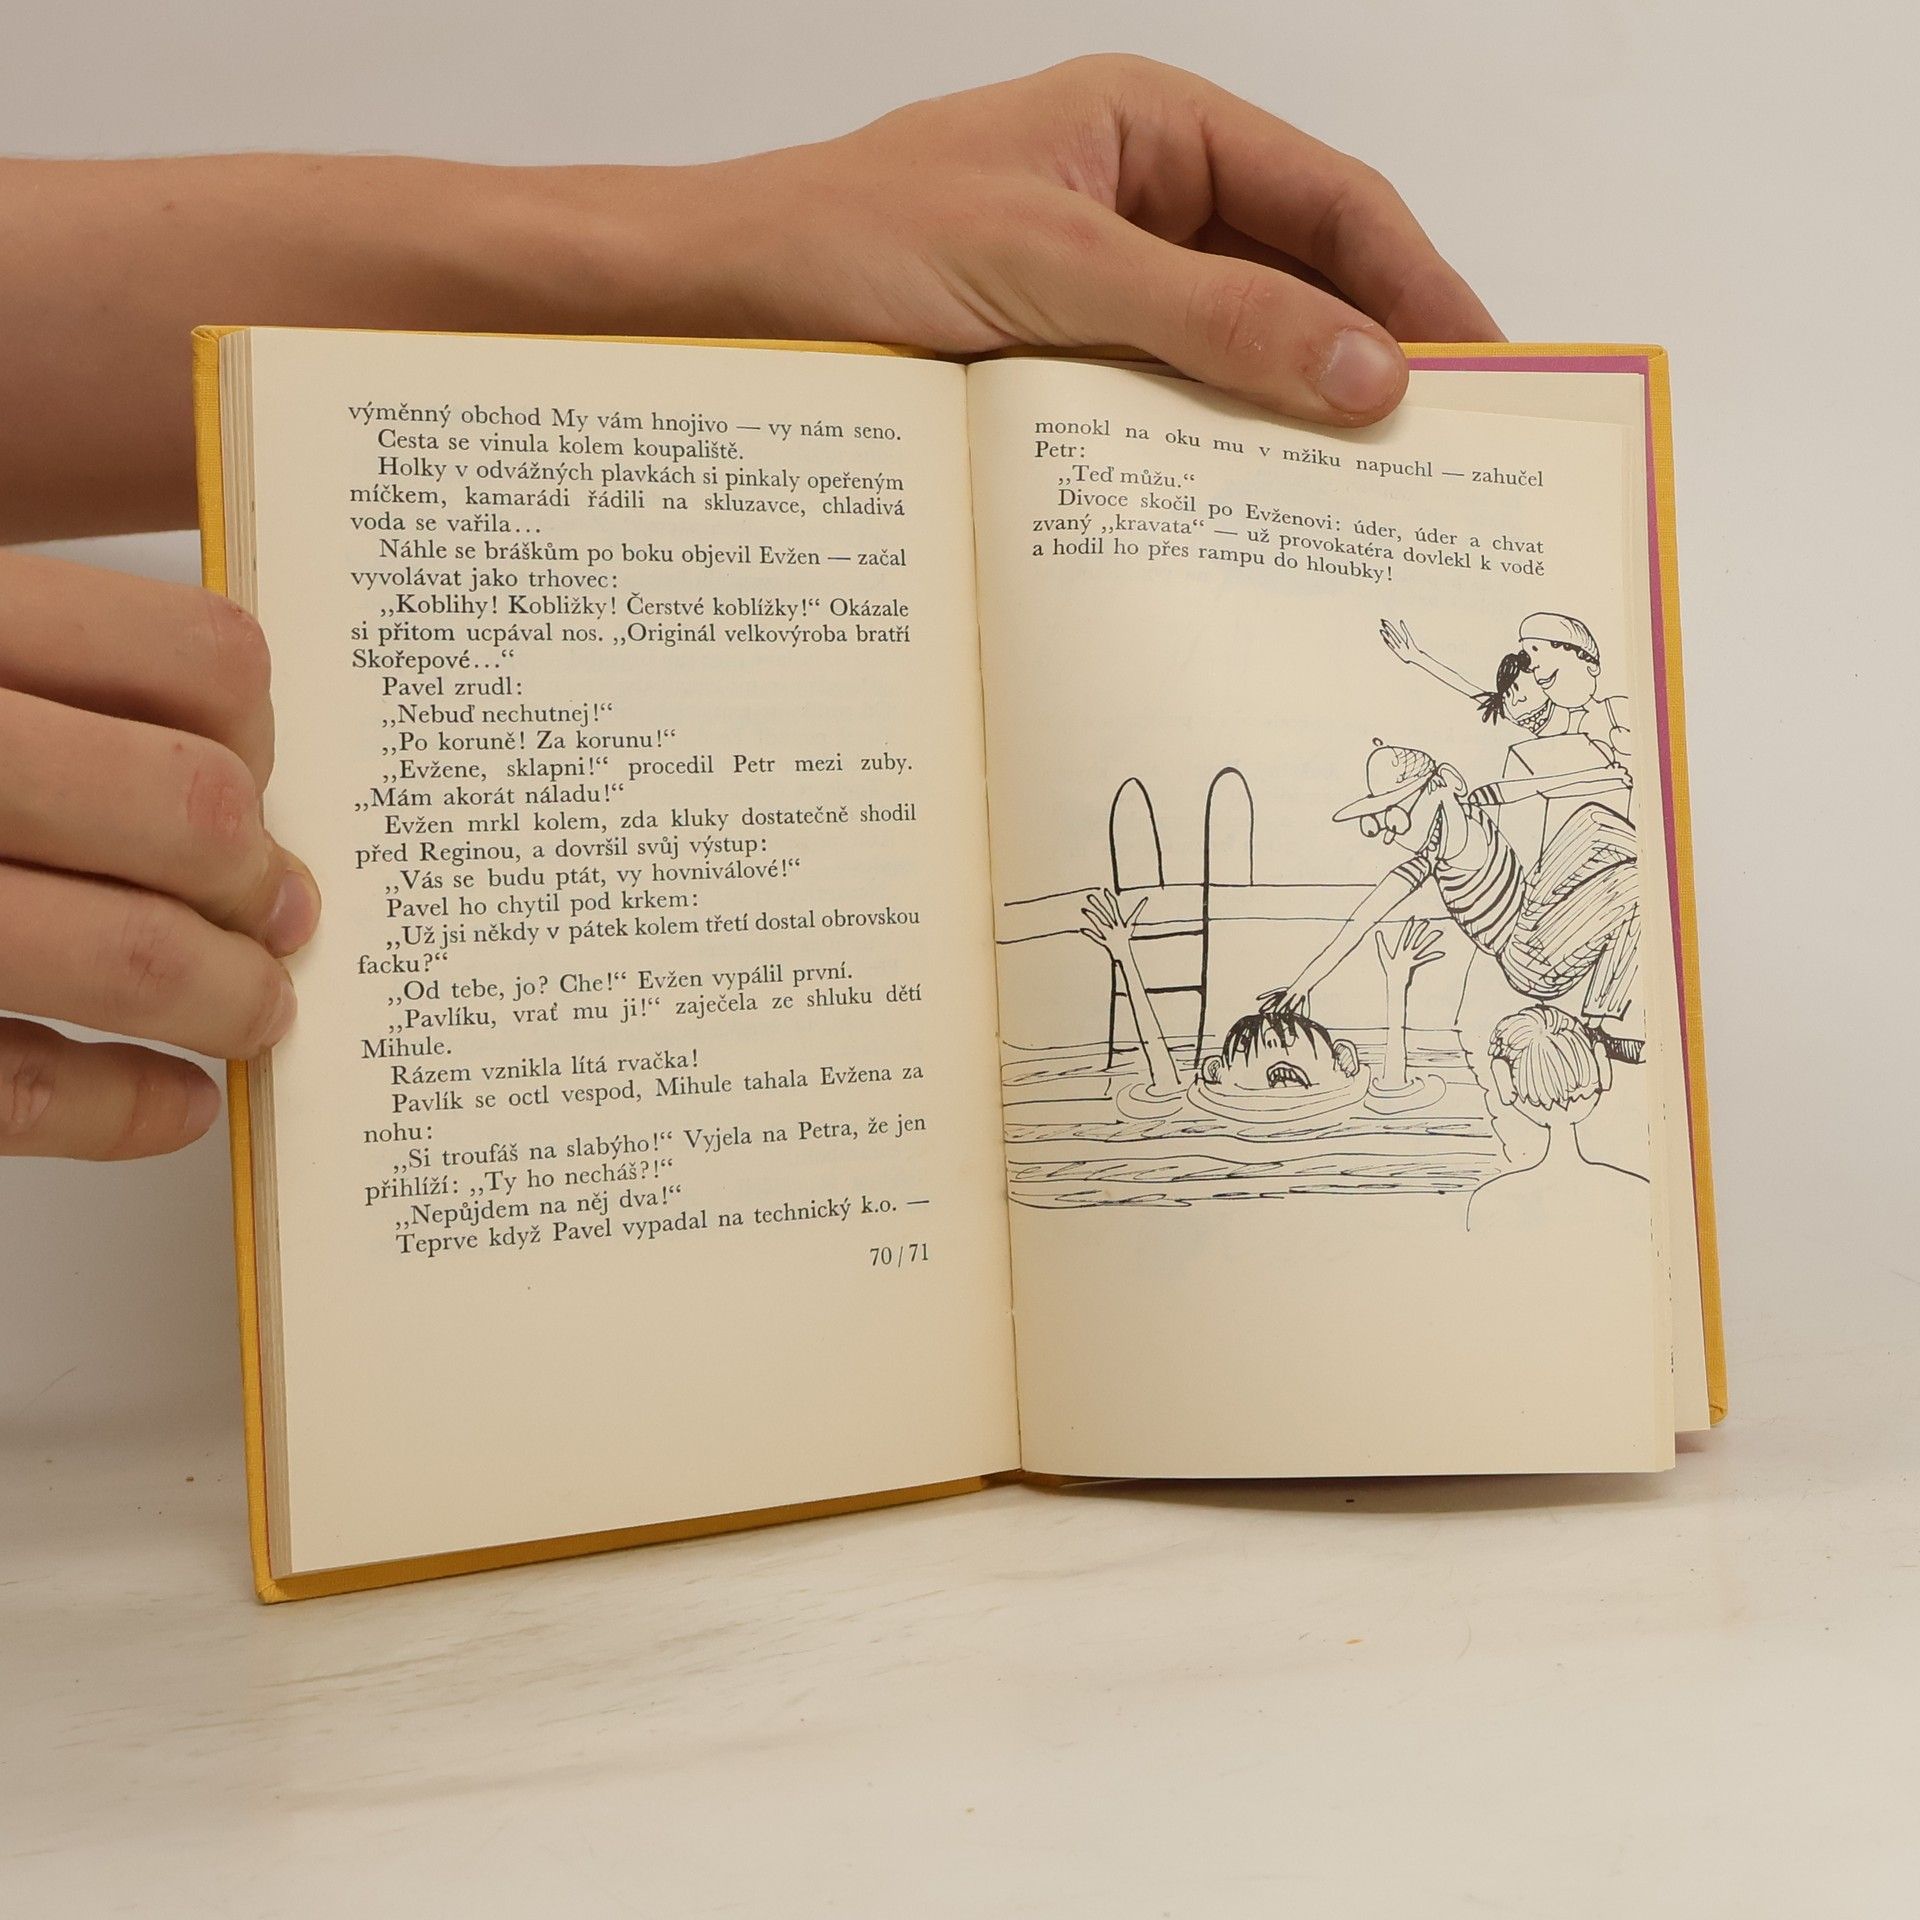 výměnný obchod My vám hnojivo — vy nám seno.
Cesta se vinula kolem koupaliště.
Holky v odvážných plavkách si pinkaly opeřeným
míčkem, kamarádi řádili na skluzavce, chladivá
voda se vařila...
Náhle se bráškům po boku objevil Evžen — začal
vyvolávat jako trhovec:
„Koblihy! Kobližky! Čerstvé koblížky!“ Okázale
si přitom ucpával nos. „Originál velkovýroba bratří
Skořepové...“
Pavel zrudl:
„Nebuď nechutnej!“
„Po koruně! Za korunu!“
„Evžene, sklapni!“ procedil Petr mezi zuby.
„Mám akorát náladu!“
Evžen mrkl kolem, zda kluky dostatečně shodil
před Reginou, a dovršil svůj výstup:
„Vás se budu ptát, vy hovniválové!“
Pavel ho chytil pod krkem:
„Už jsi někdy v pátek kolem třetí dostal obrovskou
facku?“
„Od tebe, jo? Che!“ Evžen vypálil první.
„Pavlíku, vrať mu ji!“ zaječela ze shluku dětí
Mihule.
Rázem vznikla lítá rvačka!
Pavlík se octl vespod, Mihule tahala Evžena za
nohu:
„Si troufáš na slabýho!“ Vyjela na Petra, že jen
přihlíží: „Ty ho necháš?!“
„Nepůjdem na něj dva!“
Teprve když Pavel vypadal na technický k.o. —
70/71
monokl na oku mu v mžiku napuchl — zahučel
Petr:
„Teď můžu.“
Divoce skočil po Evženovi: úder, úder a chvat
zvaný „kravata“ — už provokatéra dovlekl k vodě
a hodil ho přes rampu do hloubky!